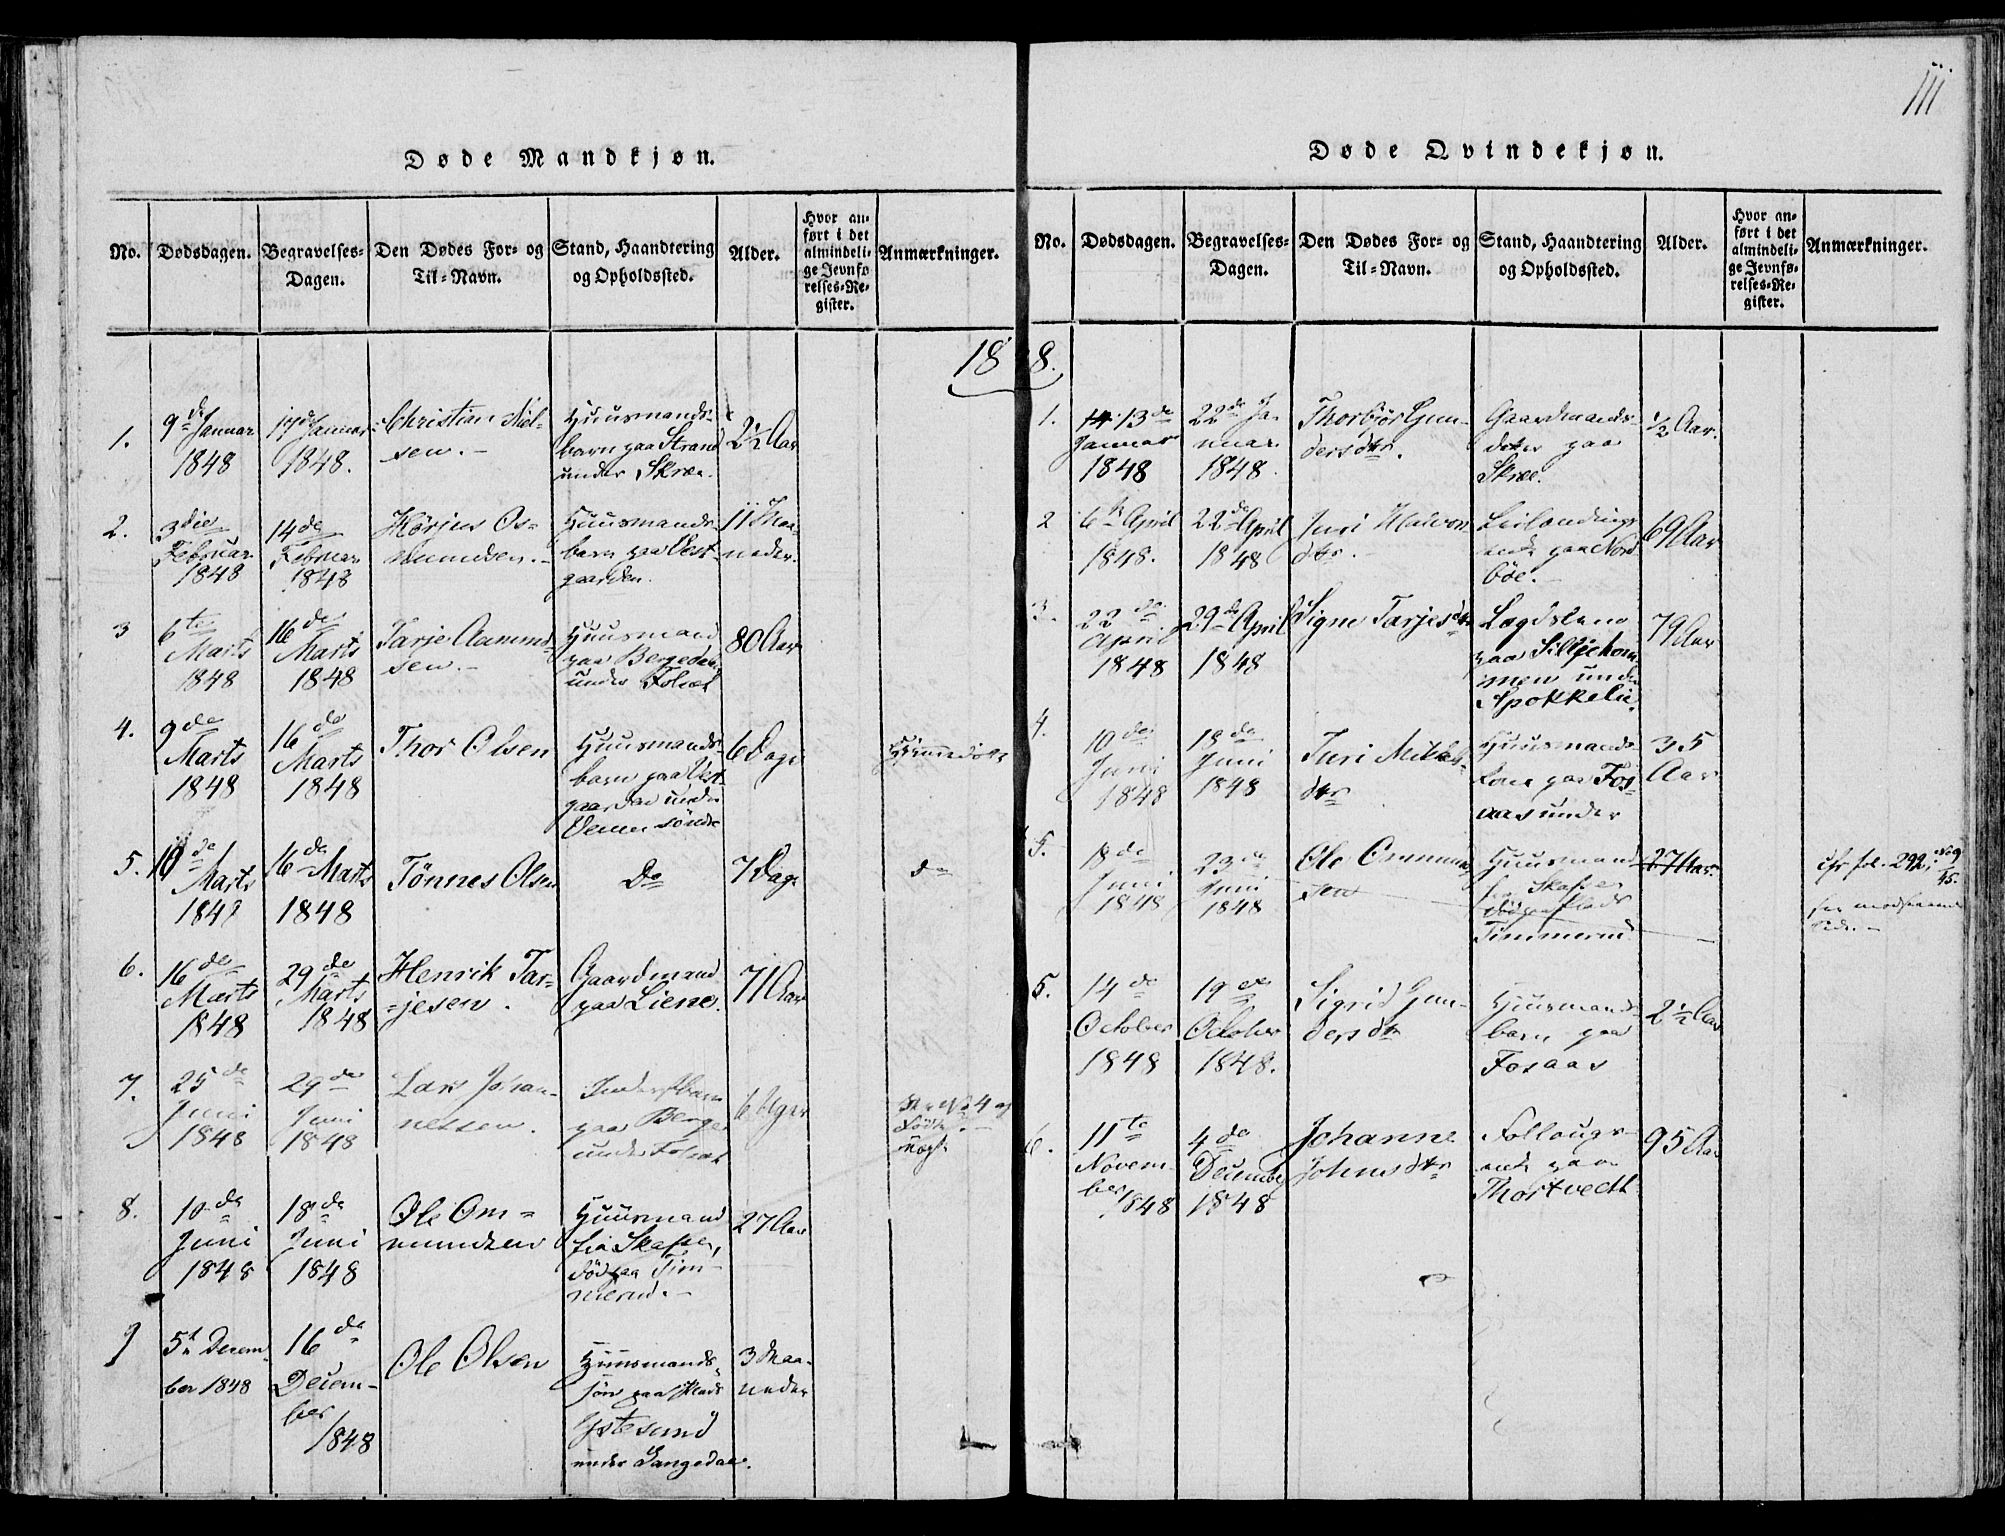 111
Døde Mandkjøn.
No. Dødsdagen. Begravelses-Dagen. Den Dødes For- og Til-Navn. Stand, Haandtering og Opholdssted. Alder. Hvor anført i det almindelige Jevnførelses-Register. Anmærkninger.
18
1. 9de Januar 1848 17de Januar 1848. Christian Niel-
sen.- Huusmands-
barn paa Strand
under Skree. 2½ Aar
2. 3die Februar 1848 14de Februar 1848 Kørjus Os-
mundsen.- Huusmands-
barn paa Vest-
gaarden. 11 Maa-
neder.
3 6te Marts 1848 16de Marts 1848 Tarje Aamund-
sen.- Huusmand
paa Bergedalen
under Folsæt 80 Aar
4. 9de Marts 1848 16de Marts 1848 Thor Olsen Huusmands-
barn paa Vest-
gaarden under
søndre 6 Dage Hjemmedøbt
5. 10de Marts 1848 16de Marts 1848 Tønnes Olsen Do 7 Dage do
6. 16de Marts 1848 29de Marts 1848 Henrik Tar-
=jesen. Gaardmand
paa Liene. 71 Aar
7. 25de Juni 1848 29de Juni 1848 Lars Johan-
nessen. Inderstbarn
paa Berge
under Folsæt 6 Uger No 4
8. 10de Juni 1848 18de Juni 1848 Ole Om=
mundsen Huusmand
fra Skafse,
død paa Tim-
merud.- 27 Aar
9 5te Decem-
ber 1848 16de Decem-
ber 1848 Ole Olsen Huusmands-
søn paa Plads
Ystesund
under Langedal. 3 Maa-
neder
Døde Qvindekjøn.
No. Dødsdagen. Begravelses-Dagen. Den Dødes For- og Til-Navn. Stand, Haandtering og Opholdssted. Alder. Hvor anført i det almindelige Jevnførelses-Register. Anmærkninger.
8.
1. 13de Januar 1848 22de Ja-
nuar 1848. Thorbjør Gun-
dersdtr. Gaardmands-
dotter paa
Skree. ½ Aar.
2 6te April 1848. 22de April 1848 Juri Halvors
dtr. Leilendings
enke paa Nord
bøe.- 69 Aar
3. 22de April 1848 29de April 1848 Signe Tarjesdtr Lægdslem
paa Siljekom-
men under
Spokkelie. 79 Aar
4. 10de Juni 1848 18de Juni 1848 Juri Mikkels-
dtr Huusmands
kone paa Fos-
aas under 35
Aar
5. 18de Juni 1848 23de Juni 1848 Ole Ommund-
sen Huusmand
fra Skafse
død paa Plads
Timmerud 27 Aar. cfr fol. 292, No 9
see modstaaende
Side.-
5. 14de October 1848 19de October 1848. Sigrid Gun-
dersdtr Huusmands
barn paa
Fosaas 2½ Aar
6. 11te Novem-
ber 1848 4de December 1848 Johanne
Johnsdtr Follougs-
enke paa
Thortvedt 95 Aar